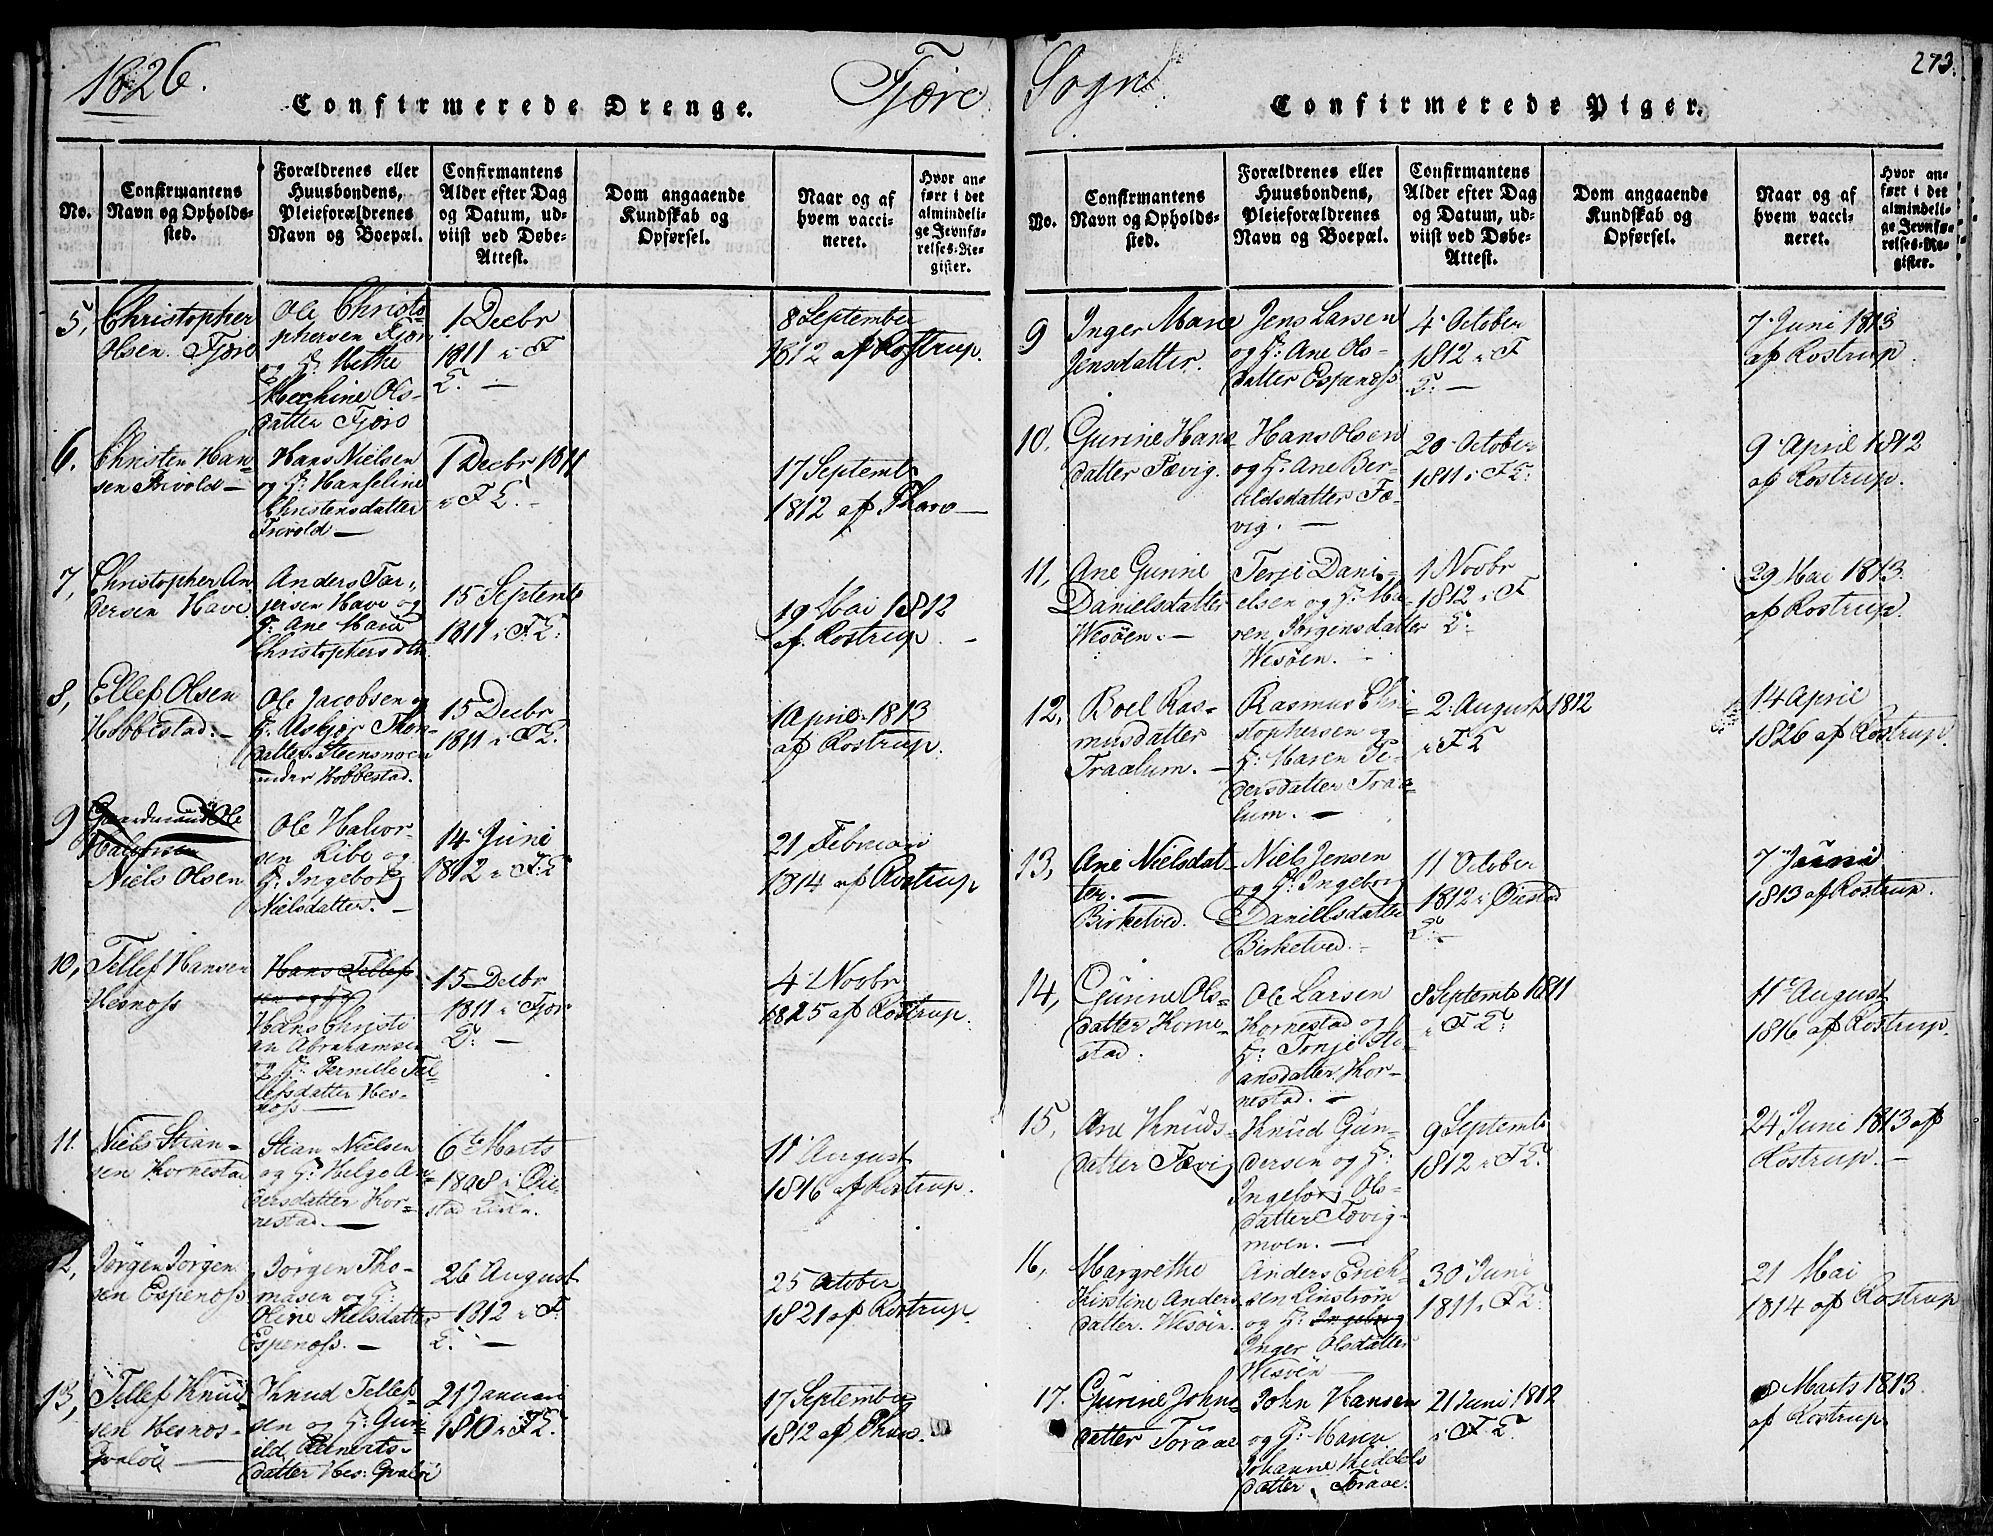 1826.
Fjære
Sogn
273.
Confirmerede Drenge.
No.
Confirmantens
Navn og Opholds-
sted.
Forældrenes eller
Huusbondens,
Pleieforældrenes
Navn og Boepæl.
Confirmantens
Alder efter Dag
og Datum, ud-
viist ved Døbe-
Attest.
Dom angaaende
Kundskab og
Opførsel.
Naar og af
hvem vacci-
neret.
Hvor an-
ført i det
almindeli-
ge Jevnfø-
relses-Re-
gister.
5,
Christopher
Olsen Fjære
Ole Christo-
phersen Fjære
og H:
Olsdatter Fjære
1 Decbr
1811 i F
K. —
8 September
1812 af Rostrup.
6.
Christen Han-
sen Trivold —
Hans Nielsen
og H: Hanseline
Christensdatter
Trivold —
1 Decbr 1811
i F K. —
17 Septembr
1812 af —
7,
Christopher An
dersen Have
Anders Tar-
jersen Have og
H: Ane Marie
Christophersdtr
15 Septembr
1811 i F. K:
19 Mai 1812
af Rostrup —
8,
Ellef Olsen
Hobbestad. —
Ole Jacobsen og
H: Asbjør Thor-
datter Steensmoen
under Hobbestad.
15 Decbr
1811 i F K:
1 April 1813
af Rostrup.
9
Niels Olsen
Ole Halvor-
sen Ribe og
H: Ingeborg
Nielsdatter. —
14 Juni
1812 i F: K:
21 Februari
1814 af Rostrup
10,
Tellef Hansen
Hesnæss
Hans Tellef-
sen og H:
Hans Christi
an Abrahamsen
og H: Pernille Tel-
lefsdatter Hes-
næss —
15 Decbr
1811 i Fjære
K: —
4 Novbr
1825 af Rostrup.
11.
Niels Stian-
sen Hornestad
Stian Nielsen
og H: Helge An-
dersdatter Hor-
nestad —
6te Marts
1808 i Øie-
stad
11 August
1816 af Rostrup.
12,
Jørgen Jørgen
sen Espenæss
Jørgen Tho-
masen og H:
Oline Nielsdatter
Espenæss. —
26 August
1812 i F.
K: —
25 October
1821 af Rostrup.
13,
Tellef Knud
sen Hesnæs-
Qvaløe —
Knud Tellef-
sen og H: Gun-
ild Reinerts-
datter Hes: Qvaløe
21 Januari
1810 i F K:
17 September
1812 af
Confirmerede Piger.
No.
Confirmantens
Navn og Opholds-
sted.
Forældrenes eller
Huusbondens,
Pleieforældrenes
Navn og Boepæl.
Confirmantens
Alder efter Dag
og Datum, ud-
viist ved Døbe-
Attest.
Dom angaaende
Kundskab og
Opførsel.
Naar og af
hvem vacci-
neret.
Hvor an-
ført i det
almindeli-
ge Jevnfø-
relses-Re-
gister.
9
Inger Marie
Jensdatter.
Jens Larsen
og H: Ane Ols-
datter Espenæss
4 October
1812 i F
K: —
7 Juni 1813
af Rostrup.
10.
Gurine Hans
datter Fævig.
Hans Olsen
og H: Ane Ber-
uldsdatter Fæ-
vig. —
20 October
1811 i F K:
9 April 1812
af Rostrup.
11,
Ane Gurine
Danielsdatter
Wesøen. —
Terje Dani-
elsen og H: Ma-
ren Jørgensdatter
Wesøen. —
1 Novbr
1812 i F
K:
29 Mai 1813.
af Rostrup.
12,
Boel Ras-
musdatter
Traalum. —
Rasmus Chri-
stophersen og
H: Maren Pe-
dersdatter Traa-
lum. —
2 August 1812
i F K
14 April
1826 af Rostrup.
13,
Ane Nielsdat-
ter. —
Birketved.
Niels Jensen
og H: Ingeborg
Danielsdatter
Birketved. —
11 October
1812 i Øiestad
K: —
7 Juni
1813 af Rostrup.
14,
Gurine Ols-
datter Horne-
stad.
Ole Larsen
Hornestad og
H: Tonje Sti-
ansdatter Hor-
nestad. —
8 Septembr 1811
i F K:
11 August
1816 af Rostrup.
15,
Ane Knuds-
datter Fævig
Knud Gun-
dersen og H:
Ingeborg Ols-
datter Fævig-
moen. —
9 Septembr
1812 i F K:
24 Juni 1813 af
Rostrup. —
16,
Margrethe
Kirstine Anders
datter Wesøen.
Anders Erich-
sen Linstrøm
og H: Ingeborg
Inger Olsdatter
Wesøen
30 Juni
1811 i F K:
21 Mai
1814 af Rostrup
17.
Gurine Johns
datter Toraae
John Hansen
og H: Maren
Johanne Kiddels
datter Toraae.
21 Juni 1812
i F K:
8 Marts 1813.
af Rostrup